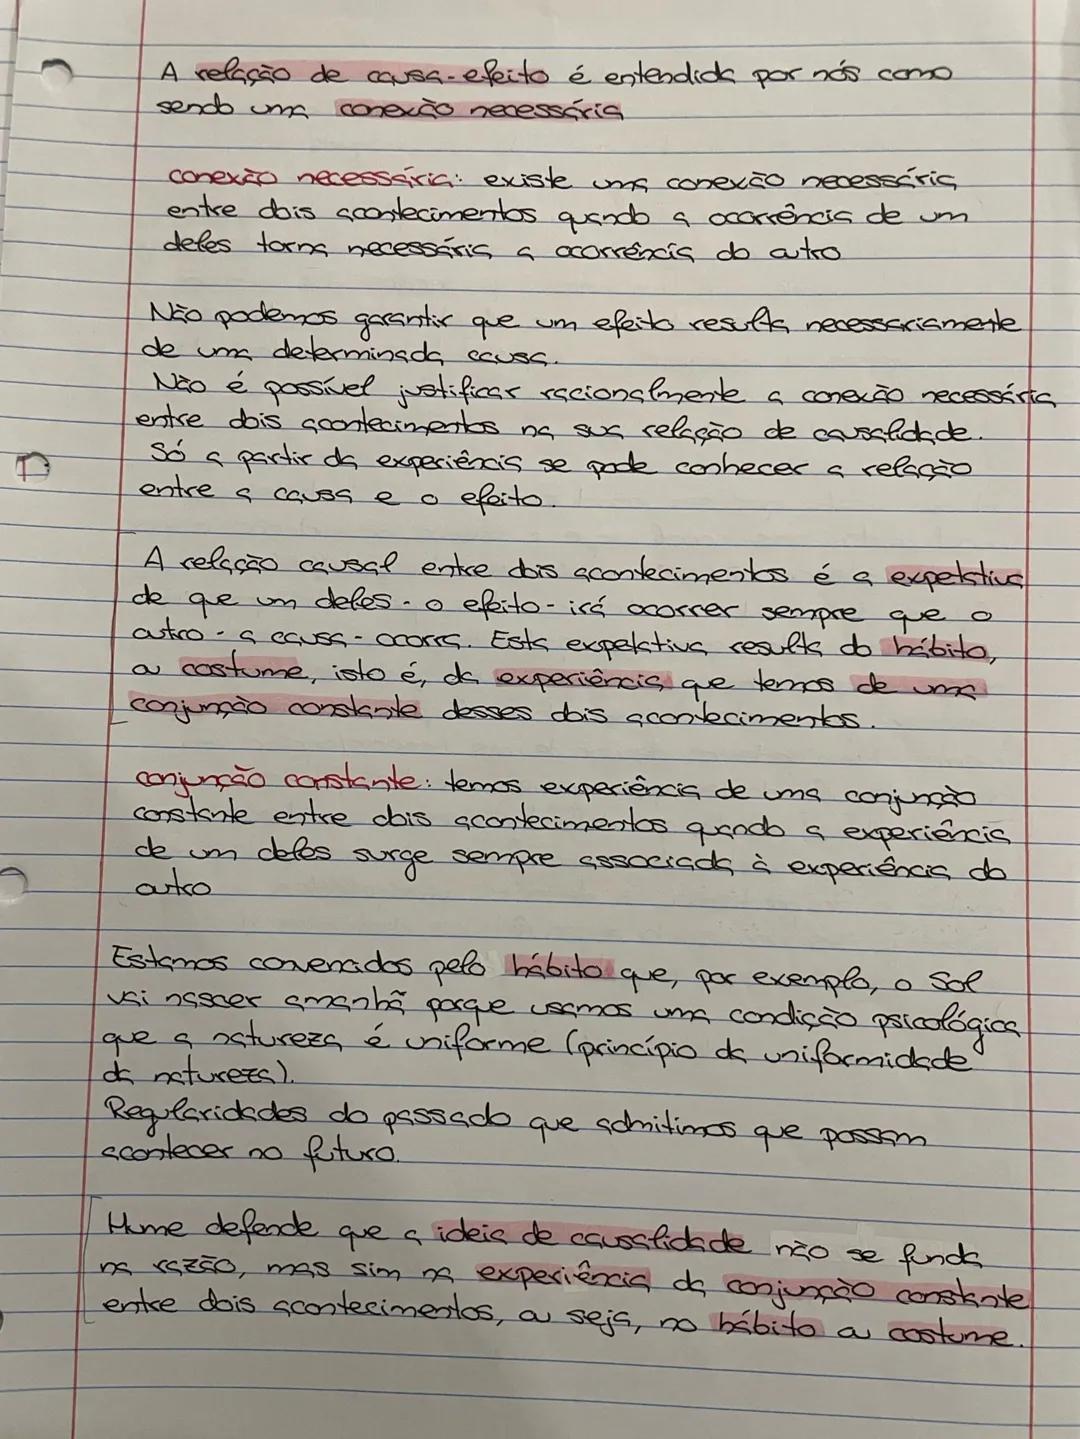 A relação de causa-efeito é entendida por nós como
sendo uma conexão necessária
conexão necessária: existe uma conexão necessária
entre dois acontecimentos quando a ocorrência de um
deles torna necessária a ocorrência do outro
Não podemos garantir que um efeito resulta necessariamente
de uma determinada causa.
Não é possível justificar racionalmente a conexão necessária
entre dois acontecimentos na sua relação de causalidade.
Só a partir da experiência se pode conhecer a relação
entre a causa e o efeito.
A relação causal entre dois acontecimentos é a expetativa
de que um deles - o efeito - irá ocorrer sempre que o
outro - a causa - ocorra. Esta expetativa resulta do hábito,
ou costume, isto é, da experiência que temos de uma
conjunção constante desses dois acontecimentos.
conjunção constante: temos experiência de uma conjunção
constante entre dois acontecimentos quando a experiência
de um deles surge sempre associada à experiência do
outro
Estamos convencidos pelo hábito que, por exemplo, o Sol
vai nascer amanhã porque usamos uma condição psicológica
que a natureza é uniforme (princípio da uniformidade
da natureza).
Regularidades do passado que admitimos que possam
acontecer no futuro.
Hume defende que a ideia de causalidade não se funda
na razão, mas sim na experiência da conjunção constante
entre dois acontecimentos, ou seja, no hábito ou costume.